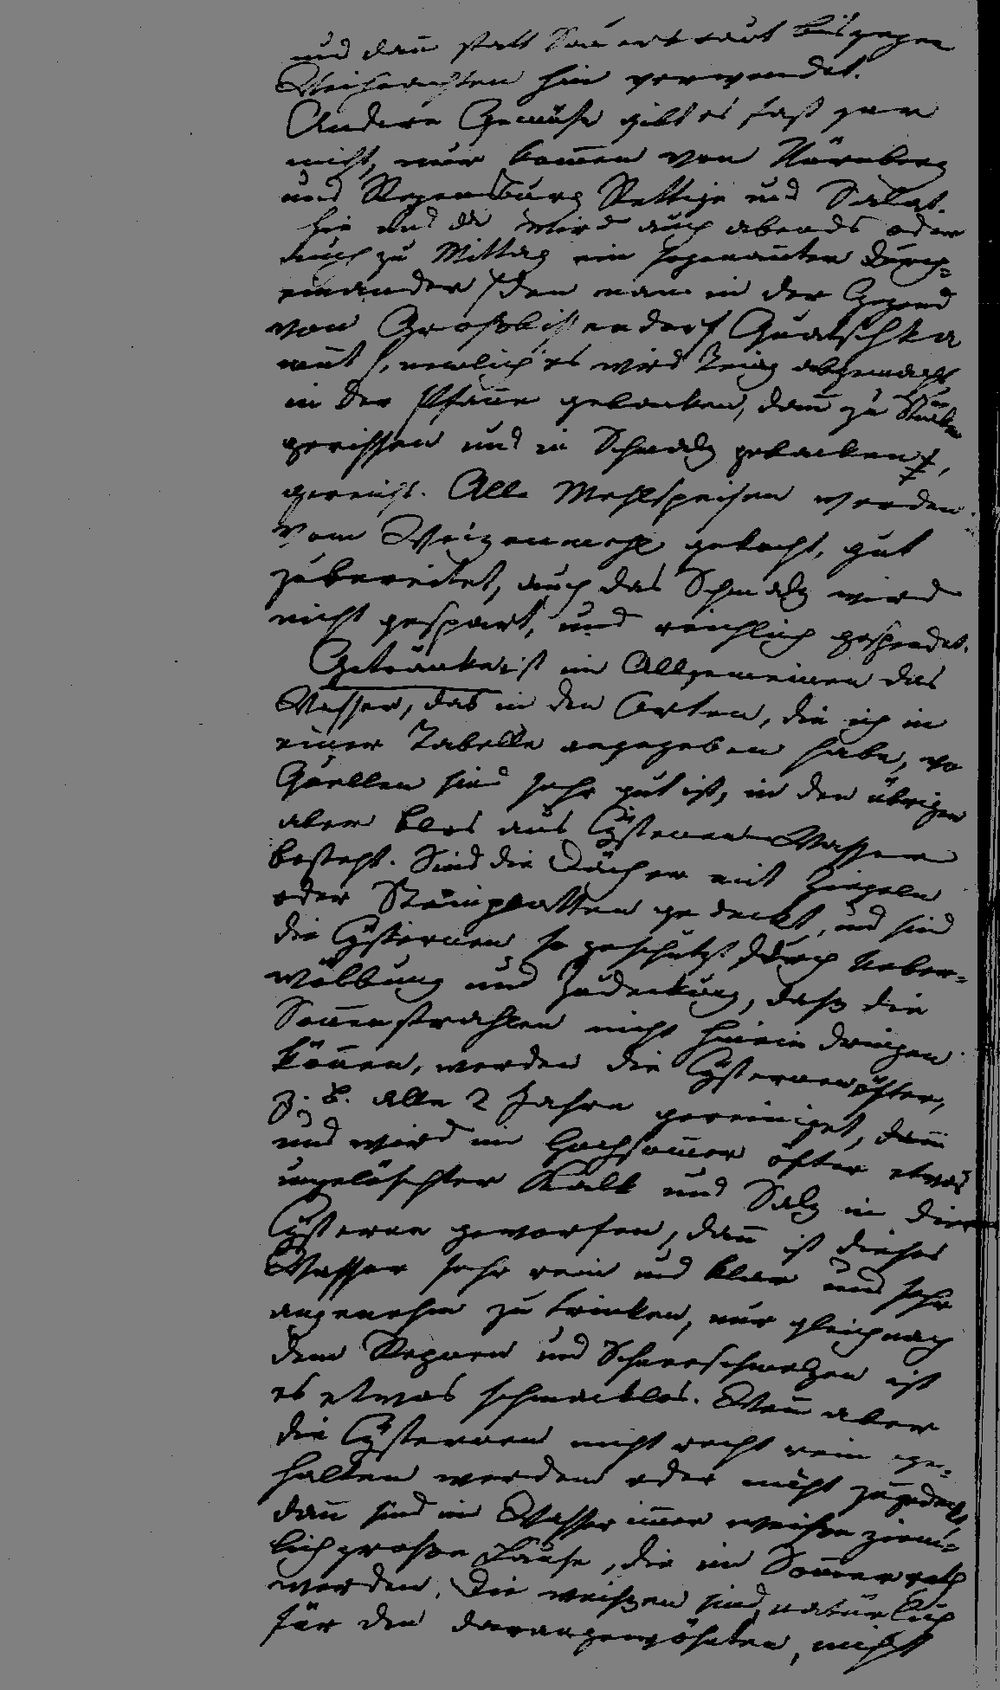 und dann statt Sauerkraut bis gegen
Weihnachten hin verwendet.
Andere Gemüse gibt es fast gar
nicht, nur kommen von Nürnberg
und Regensburg Rettige und Salat.
Hie und da wird auch abends oder
auch zu Mittag ein sogenannter Durch-
einander (den man in der Gegend
von Großbissendorf Quatschka
nennt), nemlich es wird Teig abgemacht
in der Pfanne gebacken, dann zu Stücken
gerissen und in Schmalz gebacken,
gereicht. Alle Mehlspeisen werden
vom Weizenmehl gekocht, gut
zubereitet, auch das Schmalz wird
nicht gespart, und reichlich gespendet.
Getränke ist im Allgemeinen das
Wasser, das in den Orten, die ich in
einer Tabelle angegeben habe, wo
Quellen sind sehr gut ist, in den übrigen
aber blos aus Cysternen-Wasser
besteht. Sind die Dächer mit Ziegeln
oder Steinplatten gedeckt, und sind
die Cysternen so geschützt durch Ueber-
wölbung und Zudeckung, daß die
Sonnenstrahlen nicht hinein dringen
können, werden die Cysternen öfter,
z. B. alle 2 Jahre gereiniget, dann
und wird im Hochsommer öfter etwas
ungelöschter Kalk und Salz in die
Cysterne geworfen, dann ist dieses
Wasser sehr rein und klar und sehr
angenehm zu trinken, nur gleich nach
dem Regnen und Schneeschmelzen ist
es etwas schmacklos. Wenn aber
die Cysternen nicht recht rein ge-
halten werden oder nicht zugedeckt,
dann sind im Wasser immer weiße ziem-
lich große Läuse, die im Sommer roth
werden. Die weißen sind natürlich
für den darangewöhnten, nicht